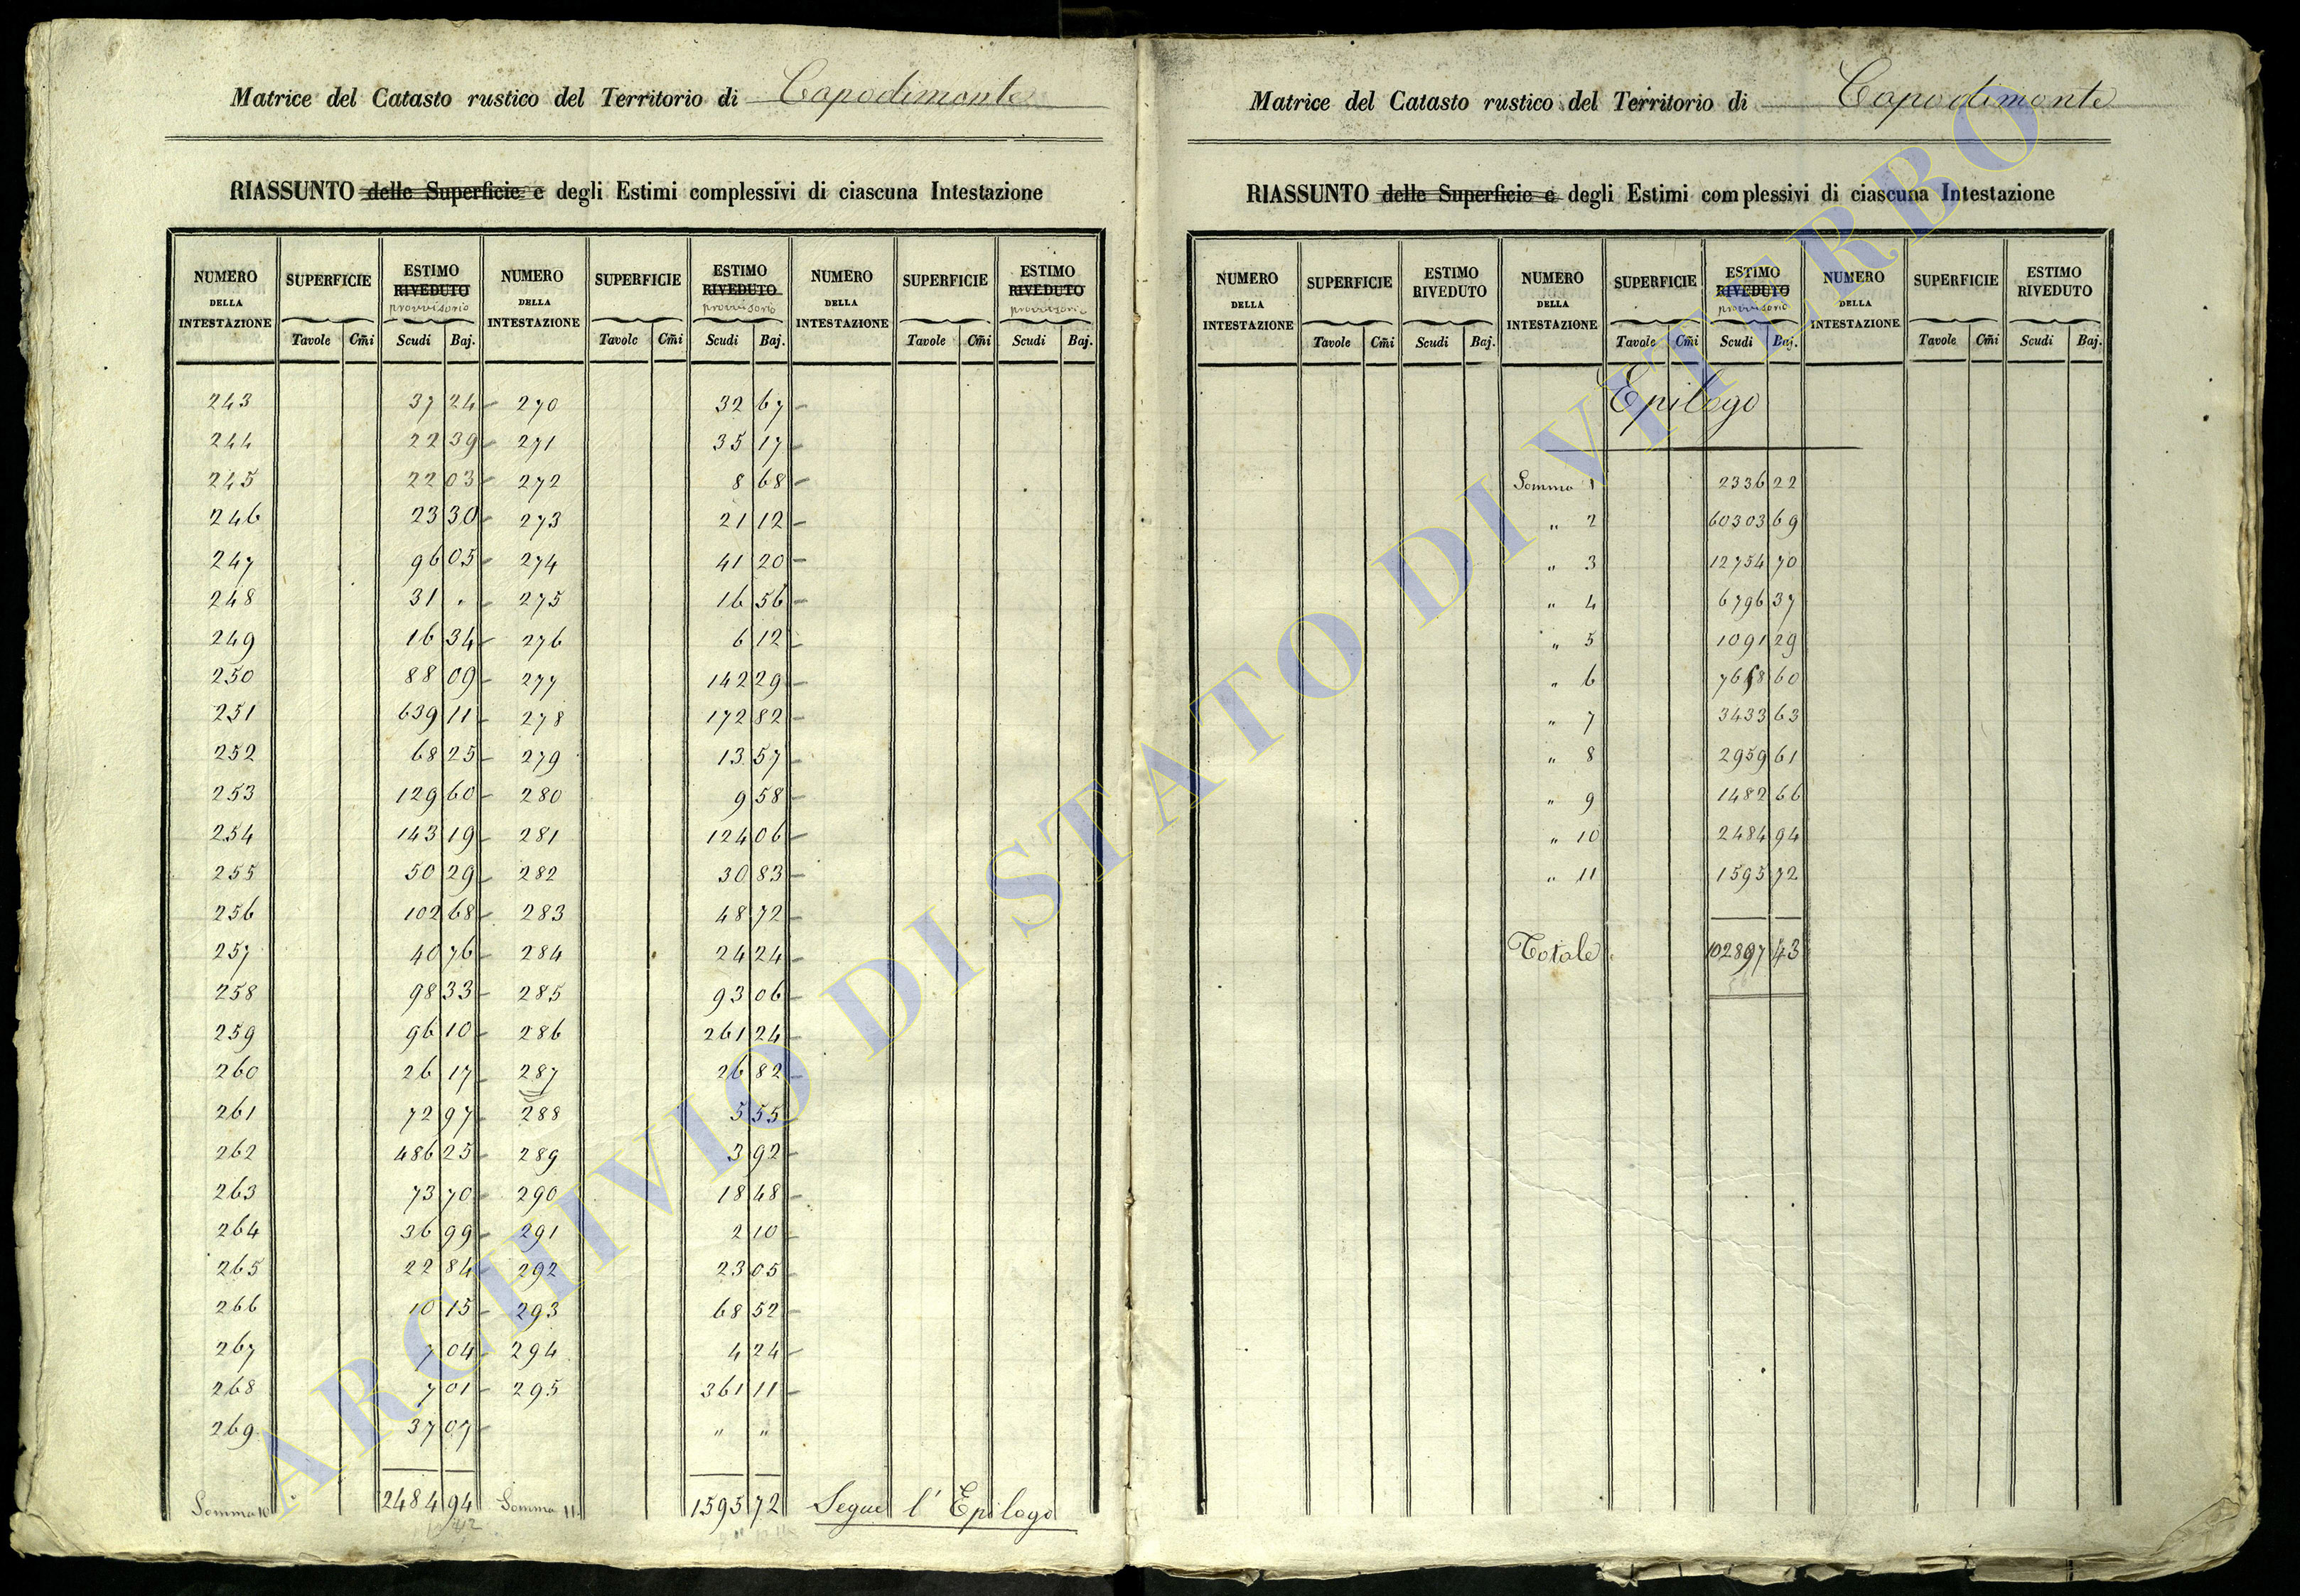 Matrice del Catasto rustico del Territorio di Capodimonte
RIASSUNTO delle Superficie e degli Estimi complessivi di ciascuna Intestazione
NUMERO DELLA INTESTAZIONE SUPERFICIE ESTIMO RIVEDUTO provvisorio NUMERO DELLA INTESTAZIONE SUPERFICIE ESTIMO RIVEDUTO provvisorio NUMERO DELLA INTESTAZIONE SUPERFICIE ESTIMO RIVEDUTO provvisorio
Tavole Cm̃i Scudi Baj. Tavole Cm̃i Scudi Baj. Tavole Cm̃i Scudi Baj.
243 37 24 270 32 67
244 22 39 271 35 17
245 22 03 272 8 68
246 23 30 273 21 12
247 96 05 274 41 20
248 31 " 275 16 56
249 16 34 276 6 12
250 88 09 277 142 29
251 639 11 278 172 82
252 68 25 279 13 57
253 129 60 280 9 58
254 143 19 281 124 06
255 50 29 282 30 83
256 102 68 283 48 72
257 40 76 284 24 24
258 98 33 285 93 06
259 96 10 286 261 24
260 26 17 287 26 82
261 72 97 288 5 55
262 486 25 289 3 92
263 73 70 290 18 48
264 36 99 291 2 10
265 22 84 292 23 05
266 10 15 293 68 52
267 7 04 294 4 24
268 7 01 295 361 11
269 37 07 " "
Somma 10 2484 94 Somma 11 1595 72 Segue l'Epilogo
Matrice del Catasto rustico del Territorio di Capodimonte
RIASSUNTO delle Superficie e degli Estimi complessivi di ciascuna Intestazione
NUMERO DELLA INTESTAZIONE SUPERFICIE ESTIMO RIVEDUTO NUMERO DELLA INTESTAZIONE SUPERFICIE ESTIMO RIVEDUTO provvisorio NUMERO DELLA INTESTAZIONE SUPERFICIE ESTIMO RIVEDUTO
Tavole Cm̃i Scudi Baj. Tavole Cm̃i Scudi Baj. Tavole Cm̃i Scudi Baj.
Epilogo
Somma 1 2336 22
" 2 60303 69
" 3 12754 70
" 4 6796 37
" 5 1091 29
" 6 7658 60
" 7 3433 63
" 8 2959 61
" 9 1482 66
" 10 2484 94
" 11 1595 72
Totale 102897 43
ARCHIVIO DI STATO DI VITERBO